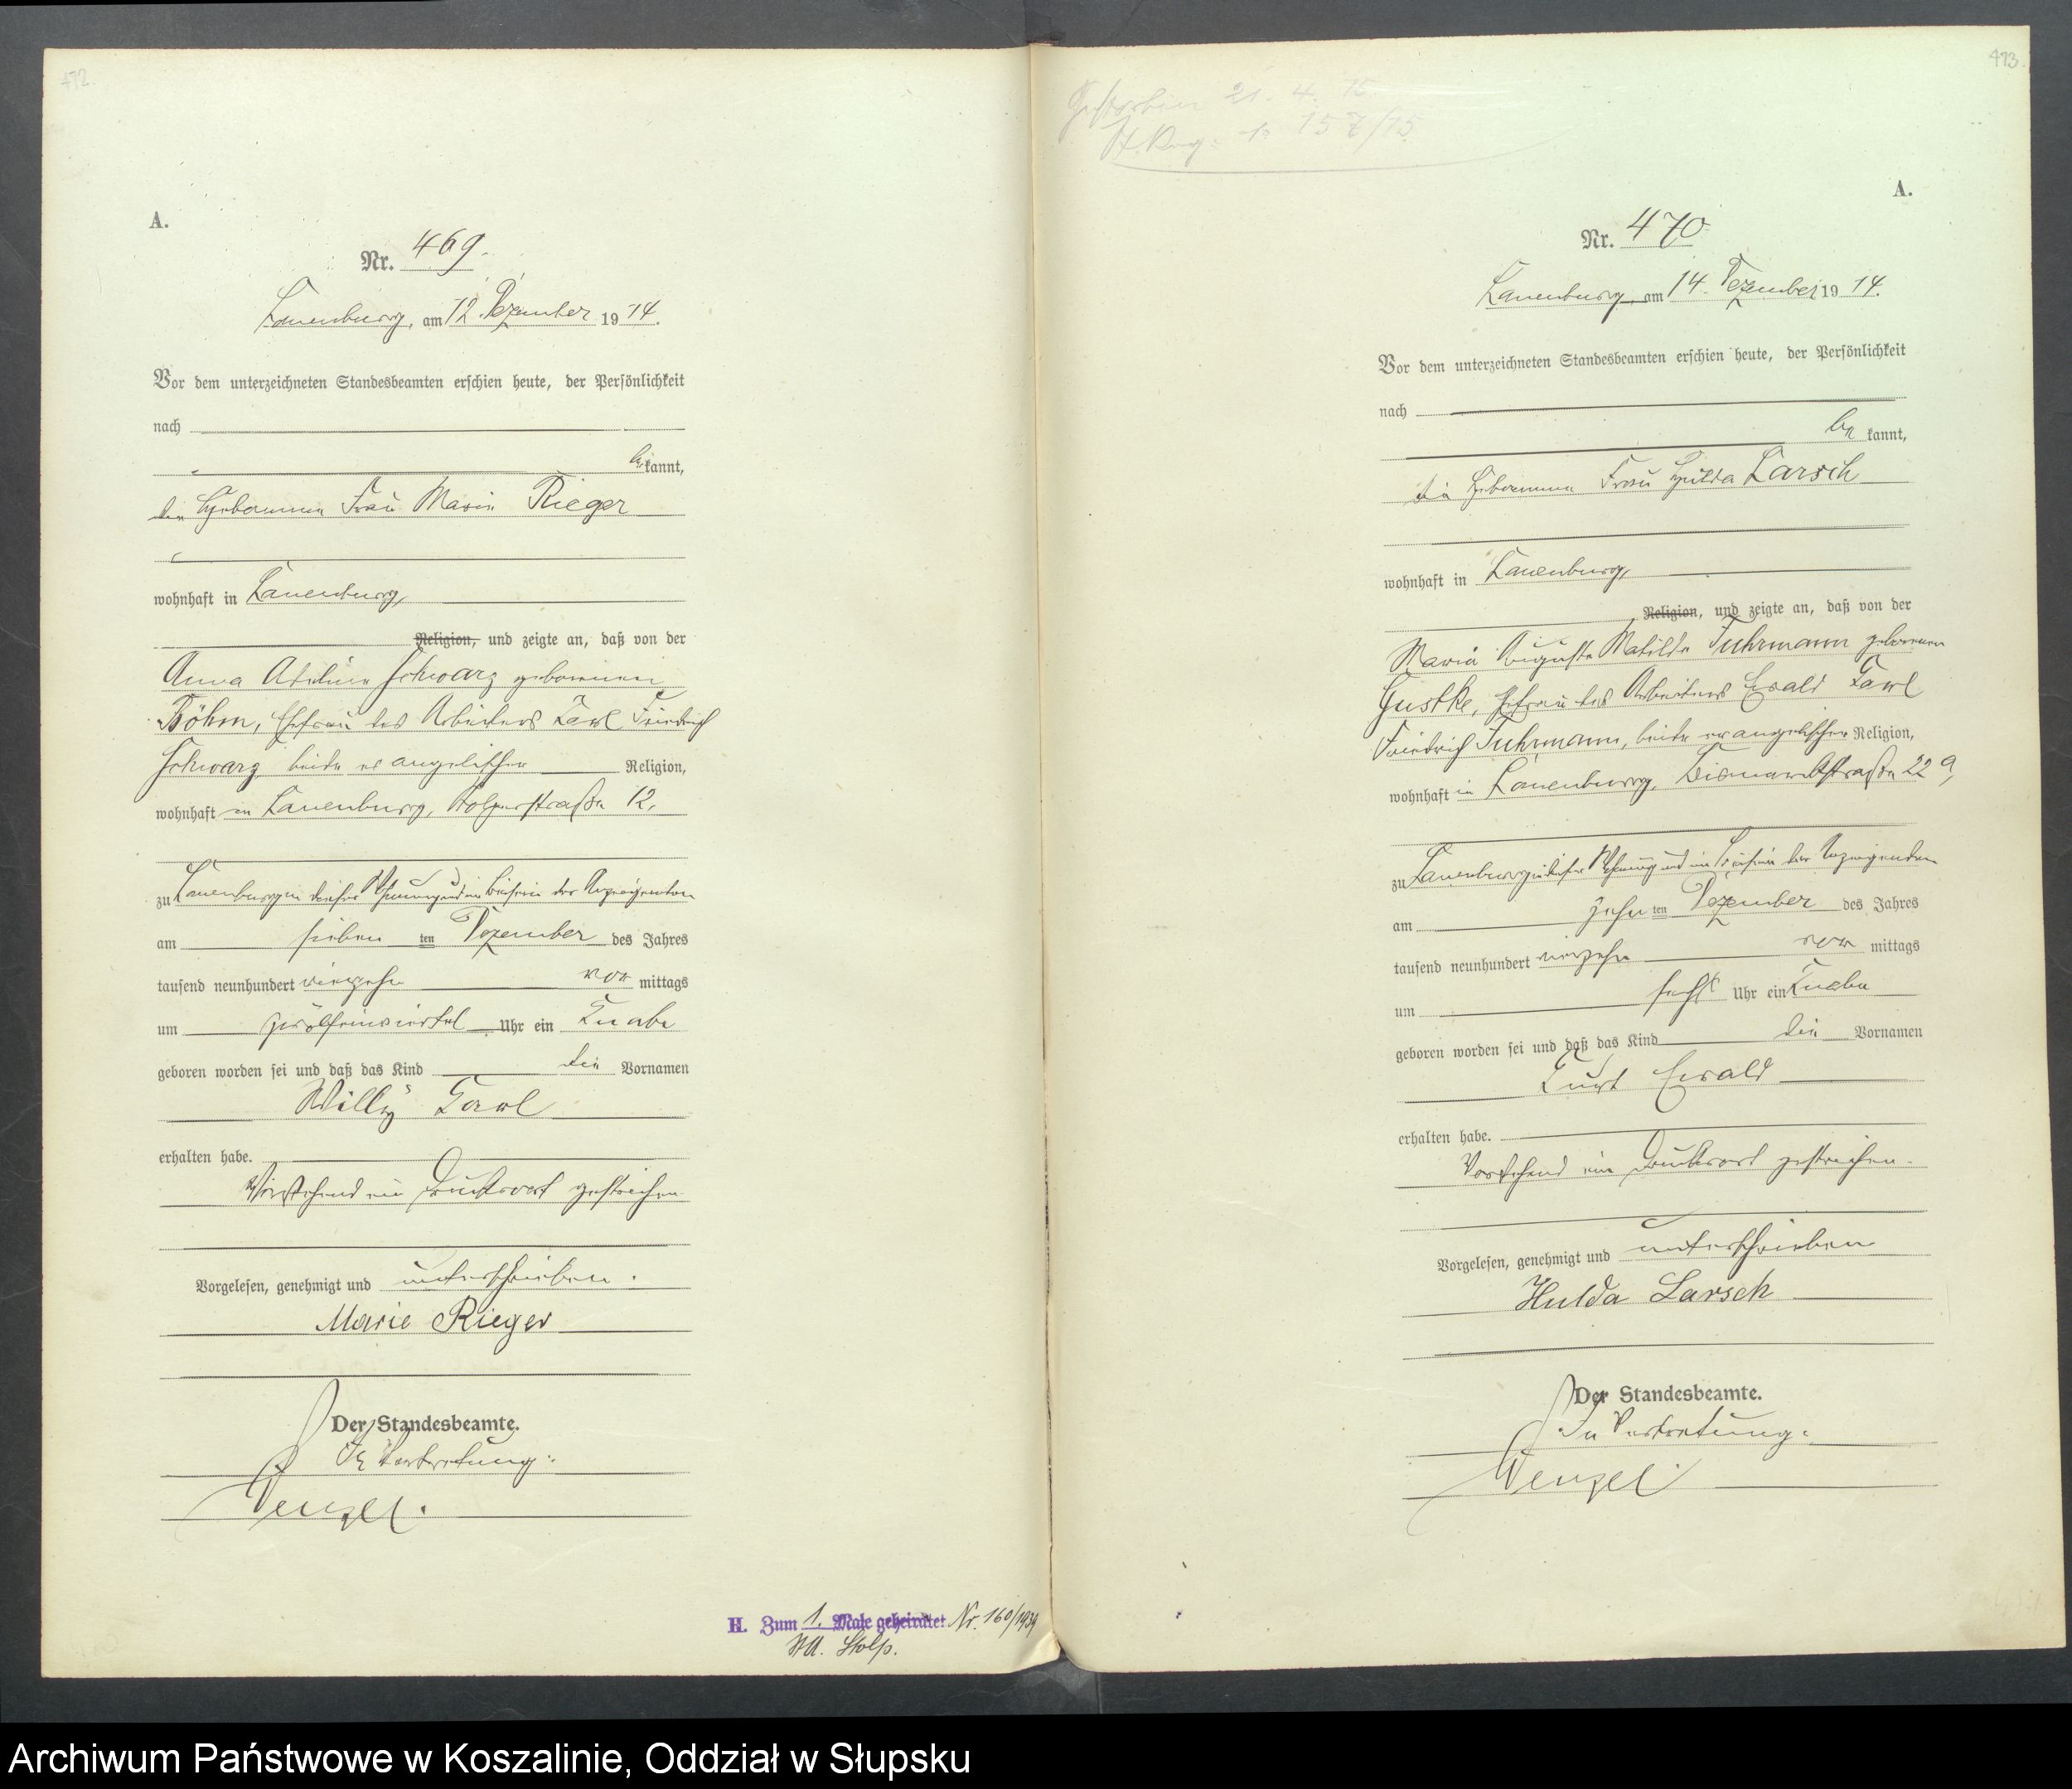 472.
A.
Nr. 469.
Lauenburg, am 12. Dezember 1914.
Vor dem unterzeichneten Standesbeamten erschien heute, der Persönlichkeit
nach
bekannt,
die Hebamme Frau Marie Rieger
wohnhaft in Lauenburg,
Religion, und zeigte an, daß von der
Anna Adeline Schwarz geborenen
Böhm, Ehefrau des Arbeiters Karl Friedrich
Schwarz beide evangelischer Religion,
wohnhaft in Lauenburg, Stolperstraße 12,
zu Lauenburg in dieser Wohnung und im Beisein der Anzeigenden
am sieben ten Dezember des Jahres
tausend neunhundert vierzehn vormittags
um zwölfeinviertel Uhr ein Knabe
geboren worden sei und daß das Kind die Vornamen
Willy Karl
erhalten habe.
Vorstehend ein Druckwort gestrichen
Vorgelesen, genehmigt und unterschrieben.
Marie Rieger
Der Standesbeamte.
In Vertretung:
Wenzel.
H. Zum 1. Male geheiratet Nr. 160/1939
StA. Stolp.
473.
Gestorben 21. 4. 15.
157/15
A.
Nr. 470
Lauenburg, am 14. Dezember 1914.
Vor dem unterzeichneten Standesbeamten erschien heute, der Persönlichkeit
nach
bekannt,
die Hebamme Frau Hulda Larsch
wohnhaft in Lauenburg,
Religion, und zeigte an, daß von der
Maria Auguste Matilde Fuhrmann geborenen
Gustke, Ehefrau des Arbeiters Ewald Karl
Friedrich Fuhrmann, beide evangelischer Religion,
wohnhaft in Lauenburg, Bismarckstraße 22 a,
zu Lauenburg in dieser Wohnung und im Beisein der Anzeigenden
am zehn ten Dezember des Jahres
tausend neunhundert vierzehn vormittags
um sechs Uhr ein Knabe
geboren worden sei und daß das Kind die Vornamen
Kurt Ewald
erhalten habe.
Vorstehend ein Druckwort gestrichen.
Vorgelesen, genehmigt und unterschrieben
Hulda Larsch
Der Standesbeamte.
In Vertretung:
Wenzel
Archiwum Państwowe w Koszalinie, Oddział w Słupsku